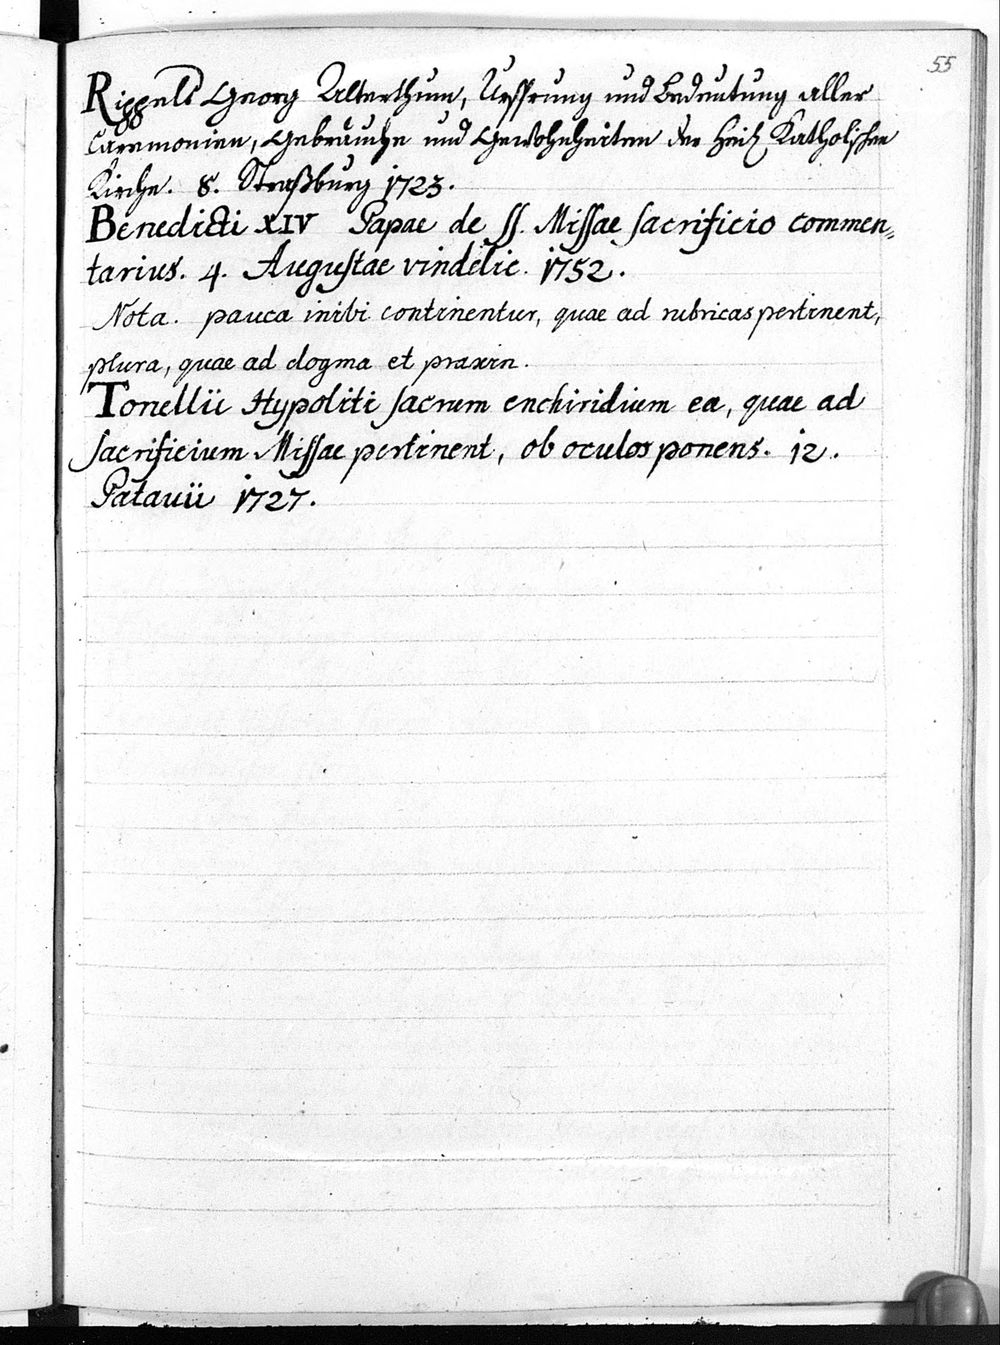 55
Rippels Georg Alterthum, Ursprung und Bedeutung aller
Caeremonien, Gebräuche und Gewohnheiten der Heil. Katholischen
Kirche. 8. Straßburg 1723.
Benedicti XIV Papae de SS. Missae sacrificio commen=
tarius. 4. Augustae vindelic. 1752.
Nota. pauca inibi continentur, quae ad rubricas pertinent,
plura, quae ad dogma et praxin.
Tonellii Hypoliti sacrum enchiridium ea, quae ad
sacrificium Missae pertinent, ob oculos ponens. 12.
Patavii 1727.